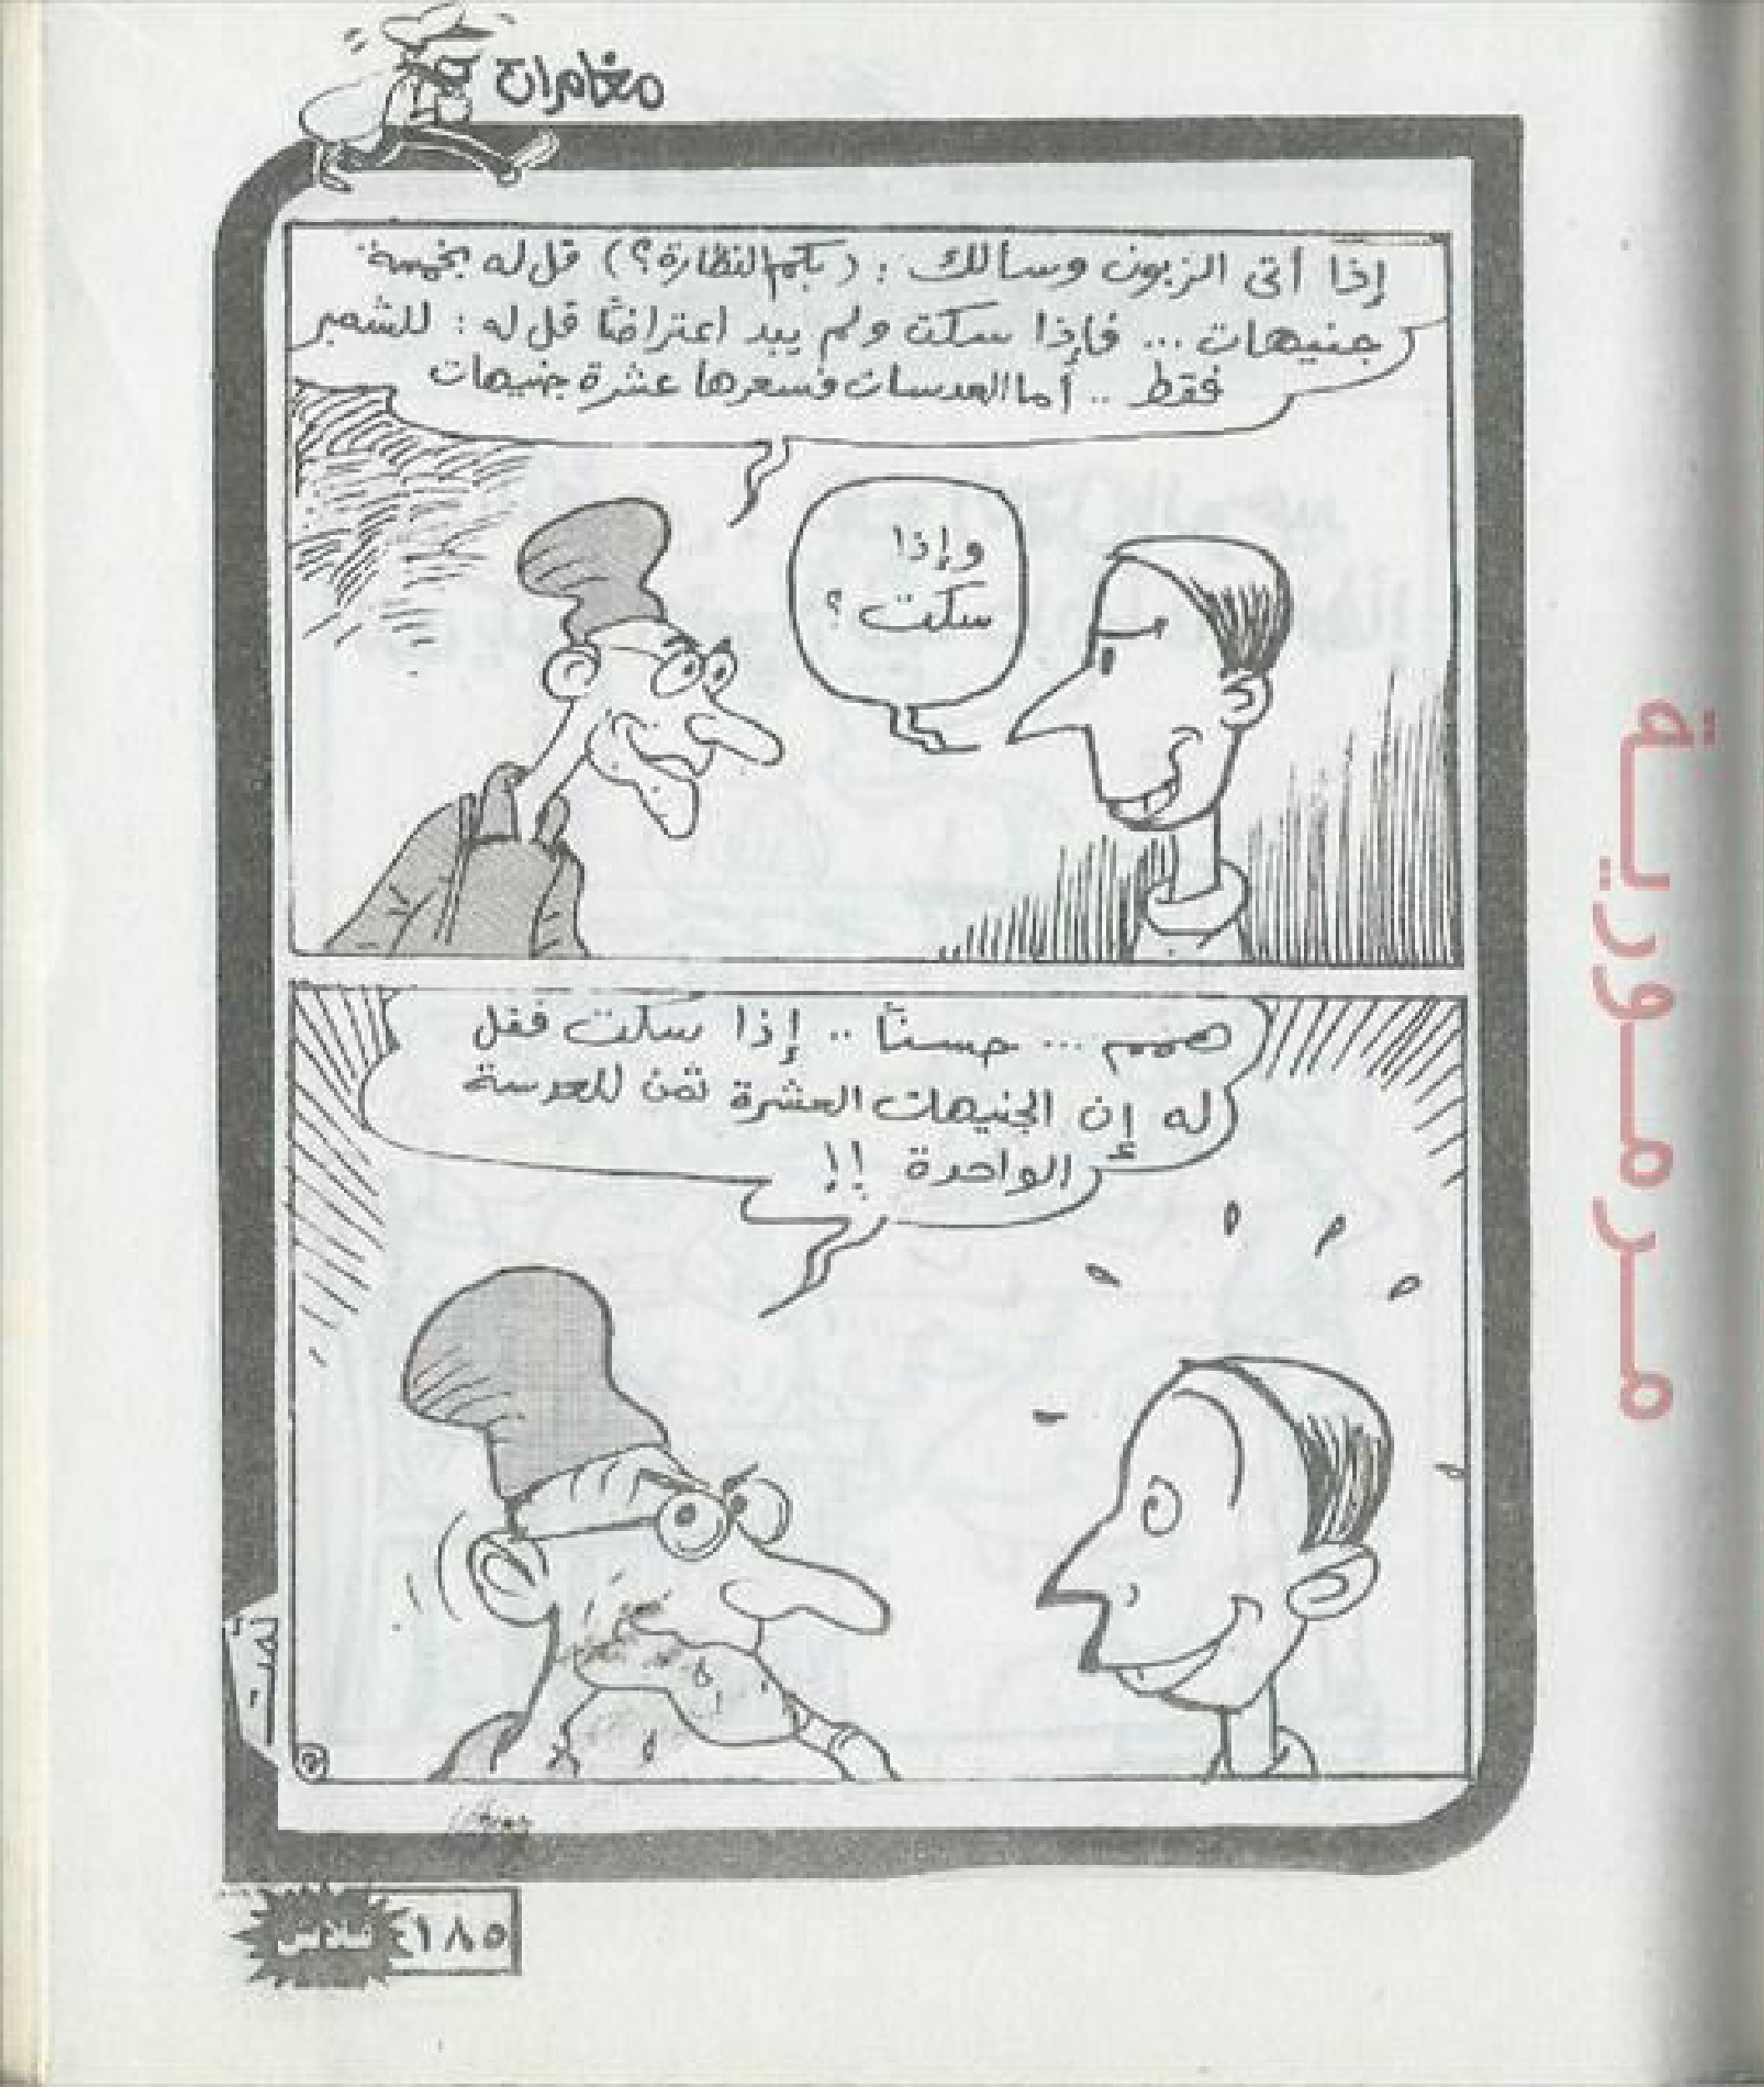 مغامرات
إذا أتى الزبون وسألك : (بكم النظارة؟) قل له بخمسة
جنيهات ... فإذا سكت ولم يبد اعتراضًا قل له : للشمبر
فقط .. أما العدسات فسعرها عشرة جنيهات
وإذا
سكت ؟
هممم ... حسنًا .. إذا سكت فقل
له إن الجنيهات العشرة ثمن للعدسة
الواحدة !!
تمت
١٨٥
فلاش
مرمورية